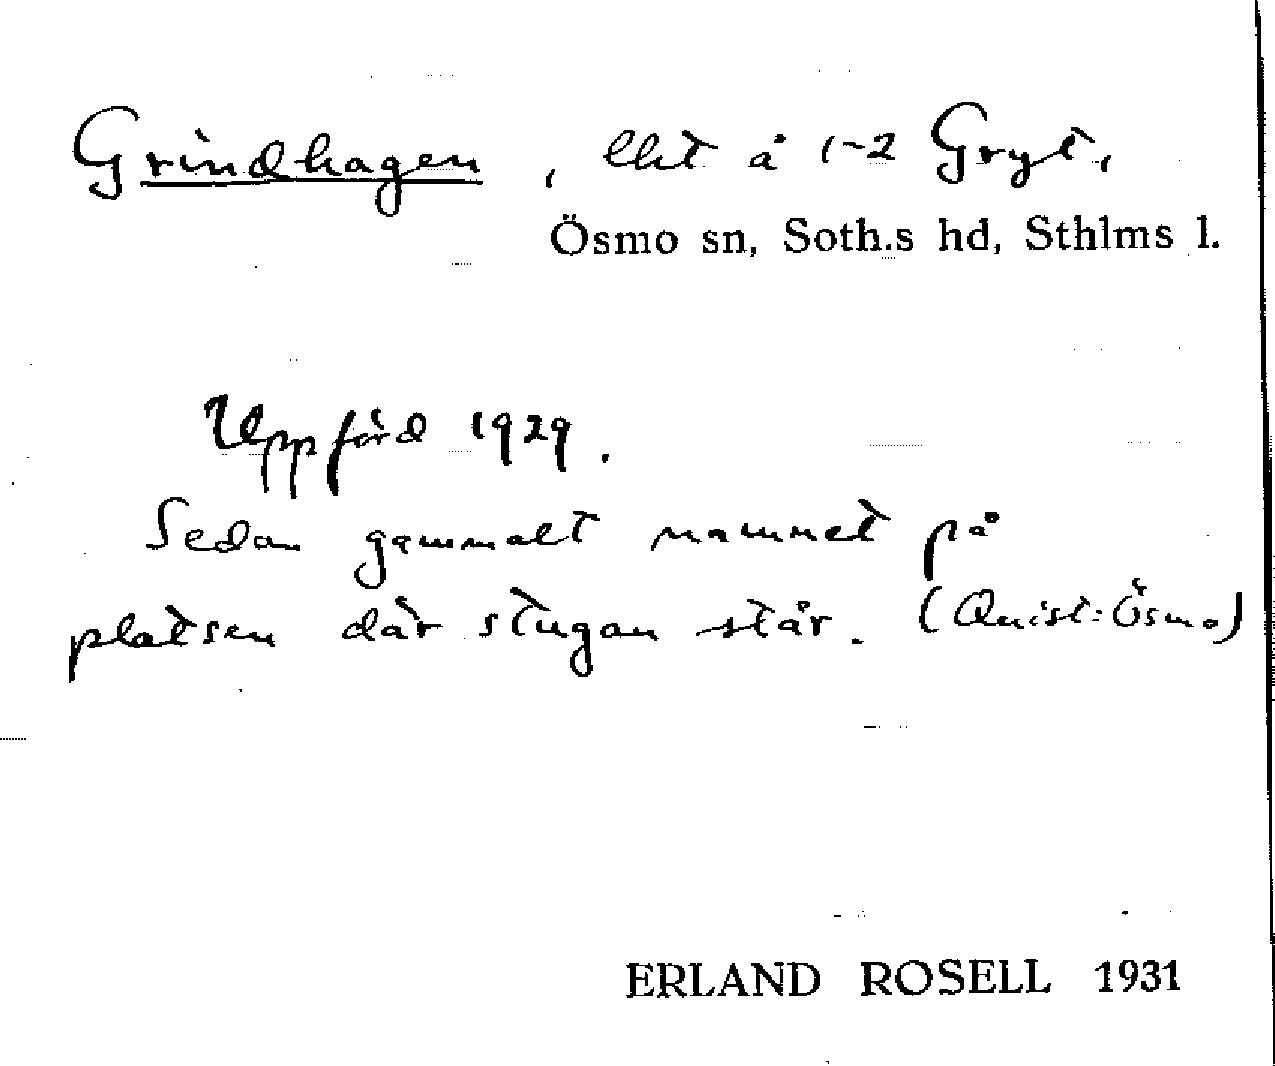 Grindhagen, lht å 1-2 Gryt,
Ösmo sn, Soth.s hd, Sthlms l.
Uppförd 1929.
Sedan gammalt namnet på
platsen där stugan står. (Quist: Ösmo)
ERLAND ROSELL 1931